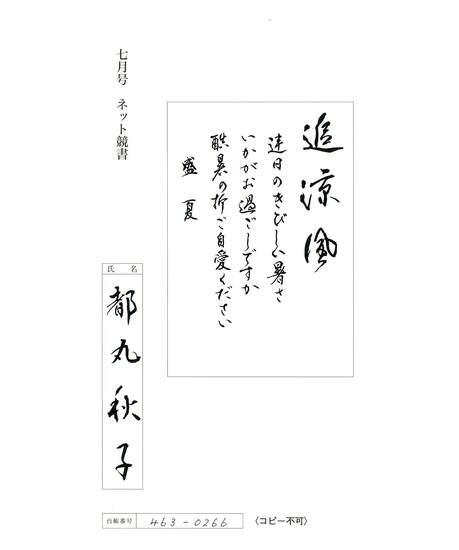 七月号　ネット競書
追涼風
連日のきびしい暑さ
いかがお過ごしですか
酷暑の折ご自愛ください
盛夏
氏名
都丸秋子
台帳番号
463-0266
〈コピー不可〉